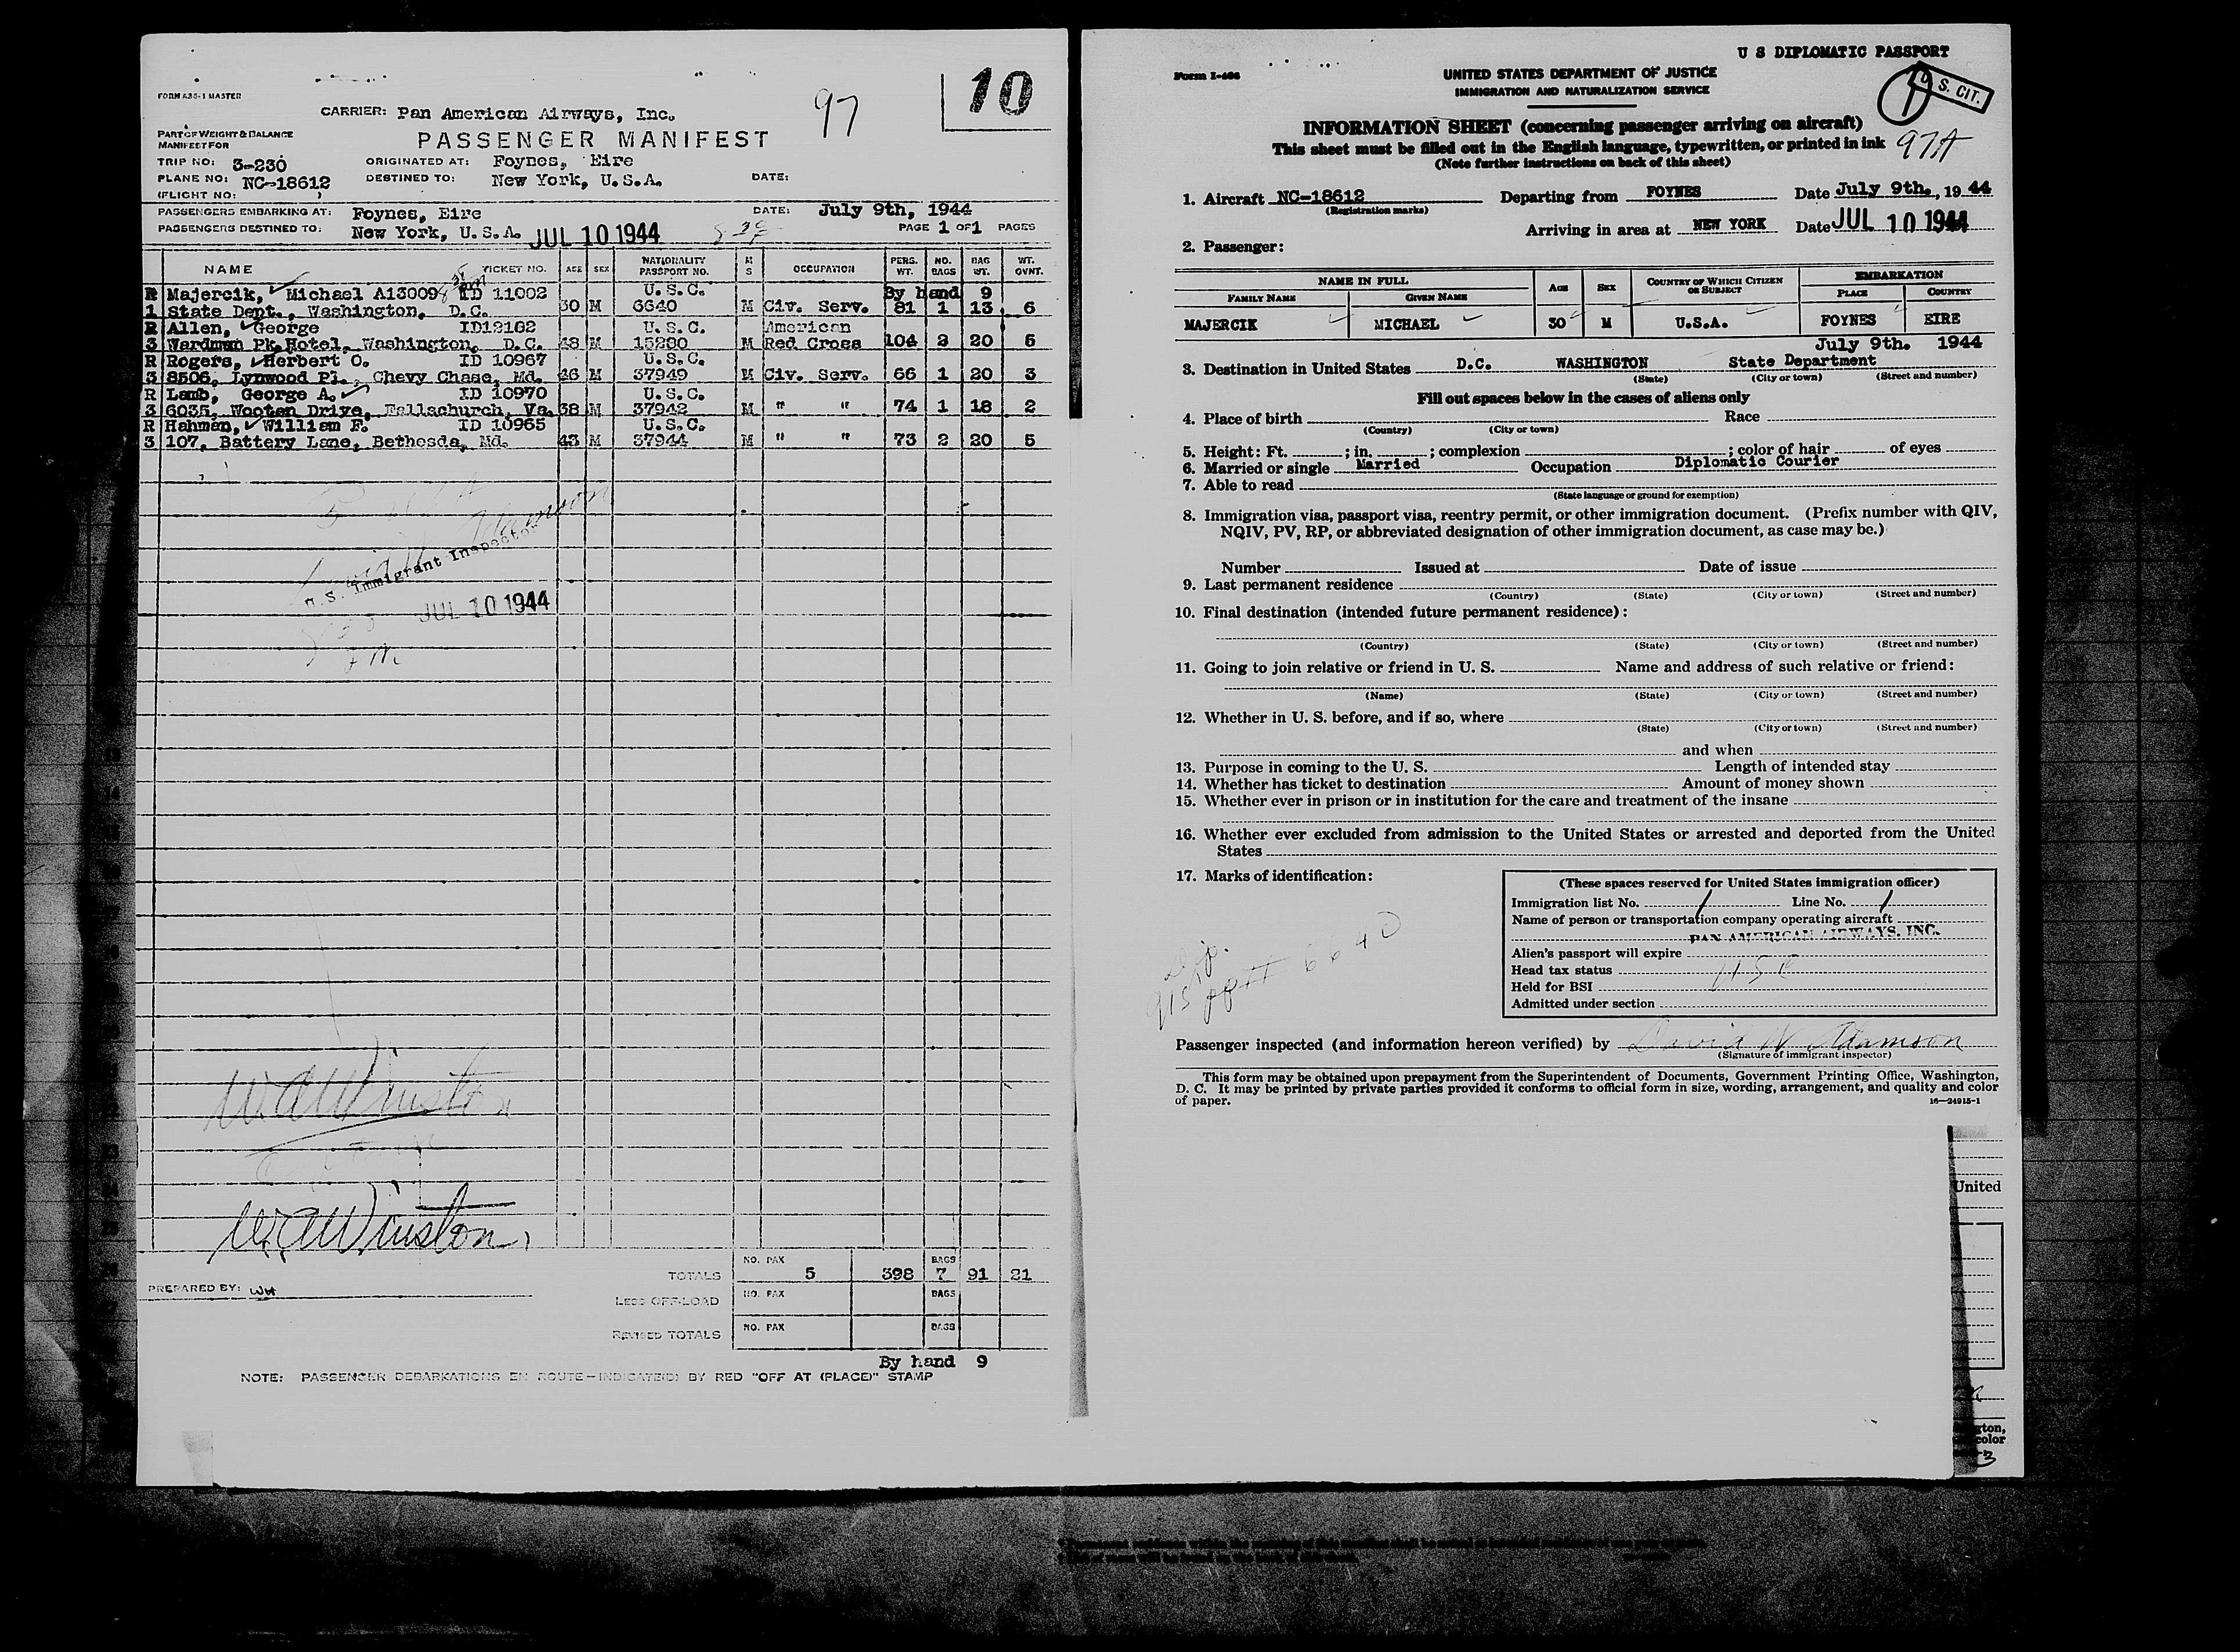 FORM A36-1 MASTER
97
10
CARRIER: Pan American Airways, Inc.
PART OF WEIGHT & BALANCE
MANIFEST FOR
PASSENGER MANIFEST
TRIP NO: 3-230 ORIGINATED AT: Foynes, Eire
PLANE NO: NC-18612 DESTINED TO: New York, U.S.A. DATE:
(FLIGHT NO: )
PASSENGERS EMBARKING AT: Foynes, Eire DATE: July 9th, 1944
PASSENGERS DESTINED TO: New York, U.S.A. JUL 10 1944 PAGE 1 OF 1 PAGES
NAME TICKET NO. AGE SEX NATIONALITY PASSPORT NO. M S OCCUPATION PERS. WT. NO. BAGS BAG WT. WT. OVNT.
R Majercik, Michael A13009 ID 11002 U.S.C. By hand 9
1 State Dept., Washington, D.C. 30 M 6640 M Civ. Serv. 81 1 13 6
R Allen, George ID12162 U.S.C. American
3 Wardman Pk. Hotel, Washington, D.C. 48 M 15280 M Red Cross 104 2 20 5
R Rogers, Herbert O. ID 10967 U.S.C.
3 8506, Lynwood Pl., Chevy Chase, Md. 46 M 37949 M Civ. Serv. 66 1 20 3
R Lamb, George A. ID 10970 U.S.C.
3 6035, Wooten Drive, Fallschurch, Va. 38 M 37942 M " " 74 1 18 2
R Hahman, William F. ID 10965 U.S.C.
3 107, Battery Lane, Bethesda, Md. 43 M 37944 M " " 73 2 20 5
U.S. Immigrant Inspector
JUL 10 1944
W.A. Winston
W.A. Winston
TOTALS NO. PAX 5 398 BAGS 7 91 21
PREPARED BY: WH
LESS OFF-LOAD NO. PAX BAGS
REVISED TOTALS NO. PAX BAGS
By hand 9
NOTE: PASSENGER DEBARKATIONS EN ROUTE—INDICATE(D) BY RED "OFF AT (PLACE)" STAMP
U S DIPLOMATIC PASSPORT
Form I-466
UNITED STATES DEPARTMENT OF JUSTICE
IMMIGRATION AND NATURALIZATION SERVICE
1
U.S. CIT.
INFORMATION SHEET (concerning passenger arriving on aircraft)
This sheet must be filled out in the English language, typewritten, or printed in ink
97A
(Note further instructions on back of this sheet)
1. Aircraft NC-18612 Departing from FOYNES Date July 9th., 1944
(Registration marks)
Arriving in area at NEW YORK Date JUL 10 1944
2. Passenger:
NAME IN FULL AGE SEX COUNTRY OF WHICH CITIZEN OR SUBJECT EMBARKATION
FAMILY NAME GIVEN NAME PLACE COUNTRY
MAJERCIK MICHAEL 30 M U.S.A. FOYNES EIRE
July 9th. 1944
3. Destination in United States D.C. WASHINGTON State Department
(State) (City or town) (Street and number)
Fill out spaces below in the cases of aliens only
4. Place of birth Race
(Country) (City or town)
5. Height: Ft. ; in. ; complexion ; color of hair of eyes
6. Married or single Married Occupation Diplomatic Courier
7. Able to read
(State language or ground for exemption)
8. Immigration visa, passport visa, reentry permit, or other immigration document. (Prefix number with QIV,
NQIV, PV, RP, or abbreviated designation of other immigration document, as case may be.)
Number Issued at Date of issue
9. Last permanent residence
(Country) (State) (City or town) (Street and number)
10. Final destination (intended future permanent residence):
(Country) (State) (City or town) (Street and number)
11. Going to join relative or friend in U. S. Name and address of such relative or friend:
(Name) (State) (City or town) (Street and number)
12. Whether in U. S. before, and if so, where
(State) (City or town) (Street and number)
and when
13. Purpose in coming to the U. S. Length of intended stay
14. Whether has ticket to destination Amount of money shown
15. Whether ever in prison or in institution for the care and treatment of the insane
16. Whether ever excluded from admission to the United States or arrested and deported from the United
States
17. Marks of identification:
(These spaces reserved for United States immigration officer)
Immigration list No. 1 Line No. 1
Name of person or transportation company operating aircraft
PAN AMERICAN AIRWAYS, INC.
Alien's passport will expire
Head tax status USC
Held for BSI
Admitted under section
Dip.
ppt 6640
Passenger inspected (and information hereon verified) by David W Adamson
(Signature of immigrant inspector)
This form may be obtained upon prepayment from the Superintendent of Documents, Government Printing Office, Washington,
D. C. It may be printed by private parties provided it conforms to official form in size, wording, arrangement, and quality and color
of paper.
16—24915-1
United
gton,
color
3